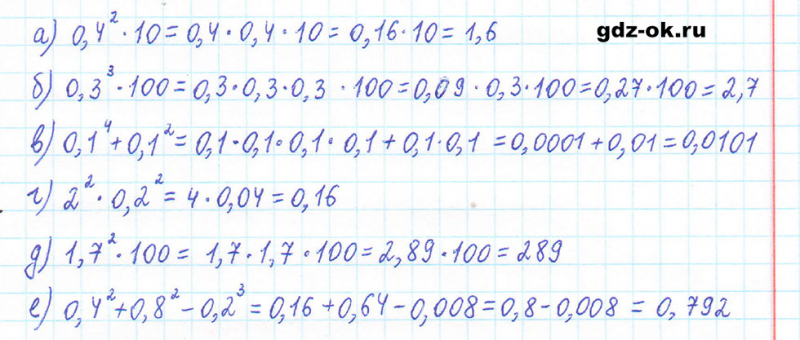 а) 0,4²·10=0,4·0,4·10=0,16·10=1,6 gdz-ok.ru
б) 0,3³·100=0,3·0,3·0,3 ·100=0,09·0,3·100=0,27·100=2,7
в) 0,1⁴+0,1²=0,1·0,1·0,1·0,1+0,1·0,1=0,0001+0,01=0,0101
г) 2²·0,2²=4·0,04=0,16
д) 1,7²·100=1,7·1,7·100=2,89·100=289
е) 0,4²+0,8²-0,2³=0,16+0,64-0,008=0,8-0,008=0,792